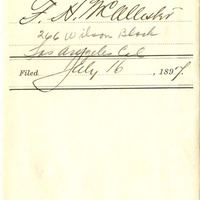 F. H. McAllister
266 Wilson Block
Los Angeles Cal
Filed July 16, 1897.